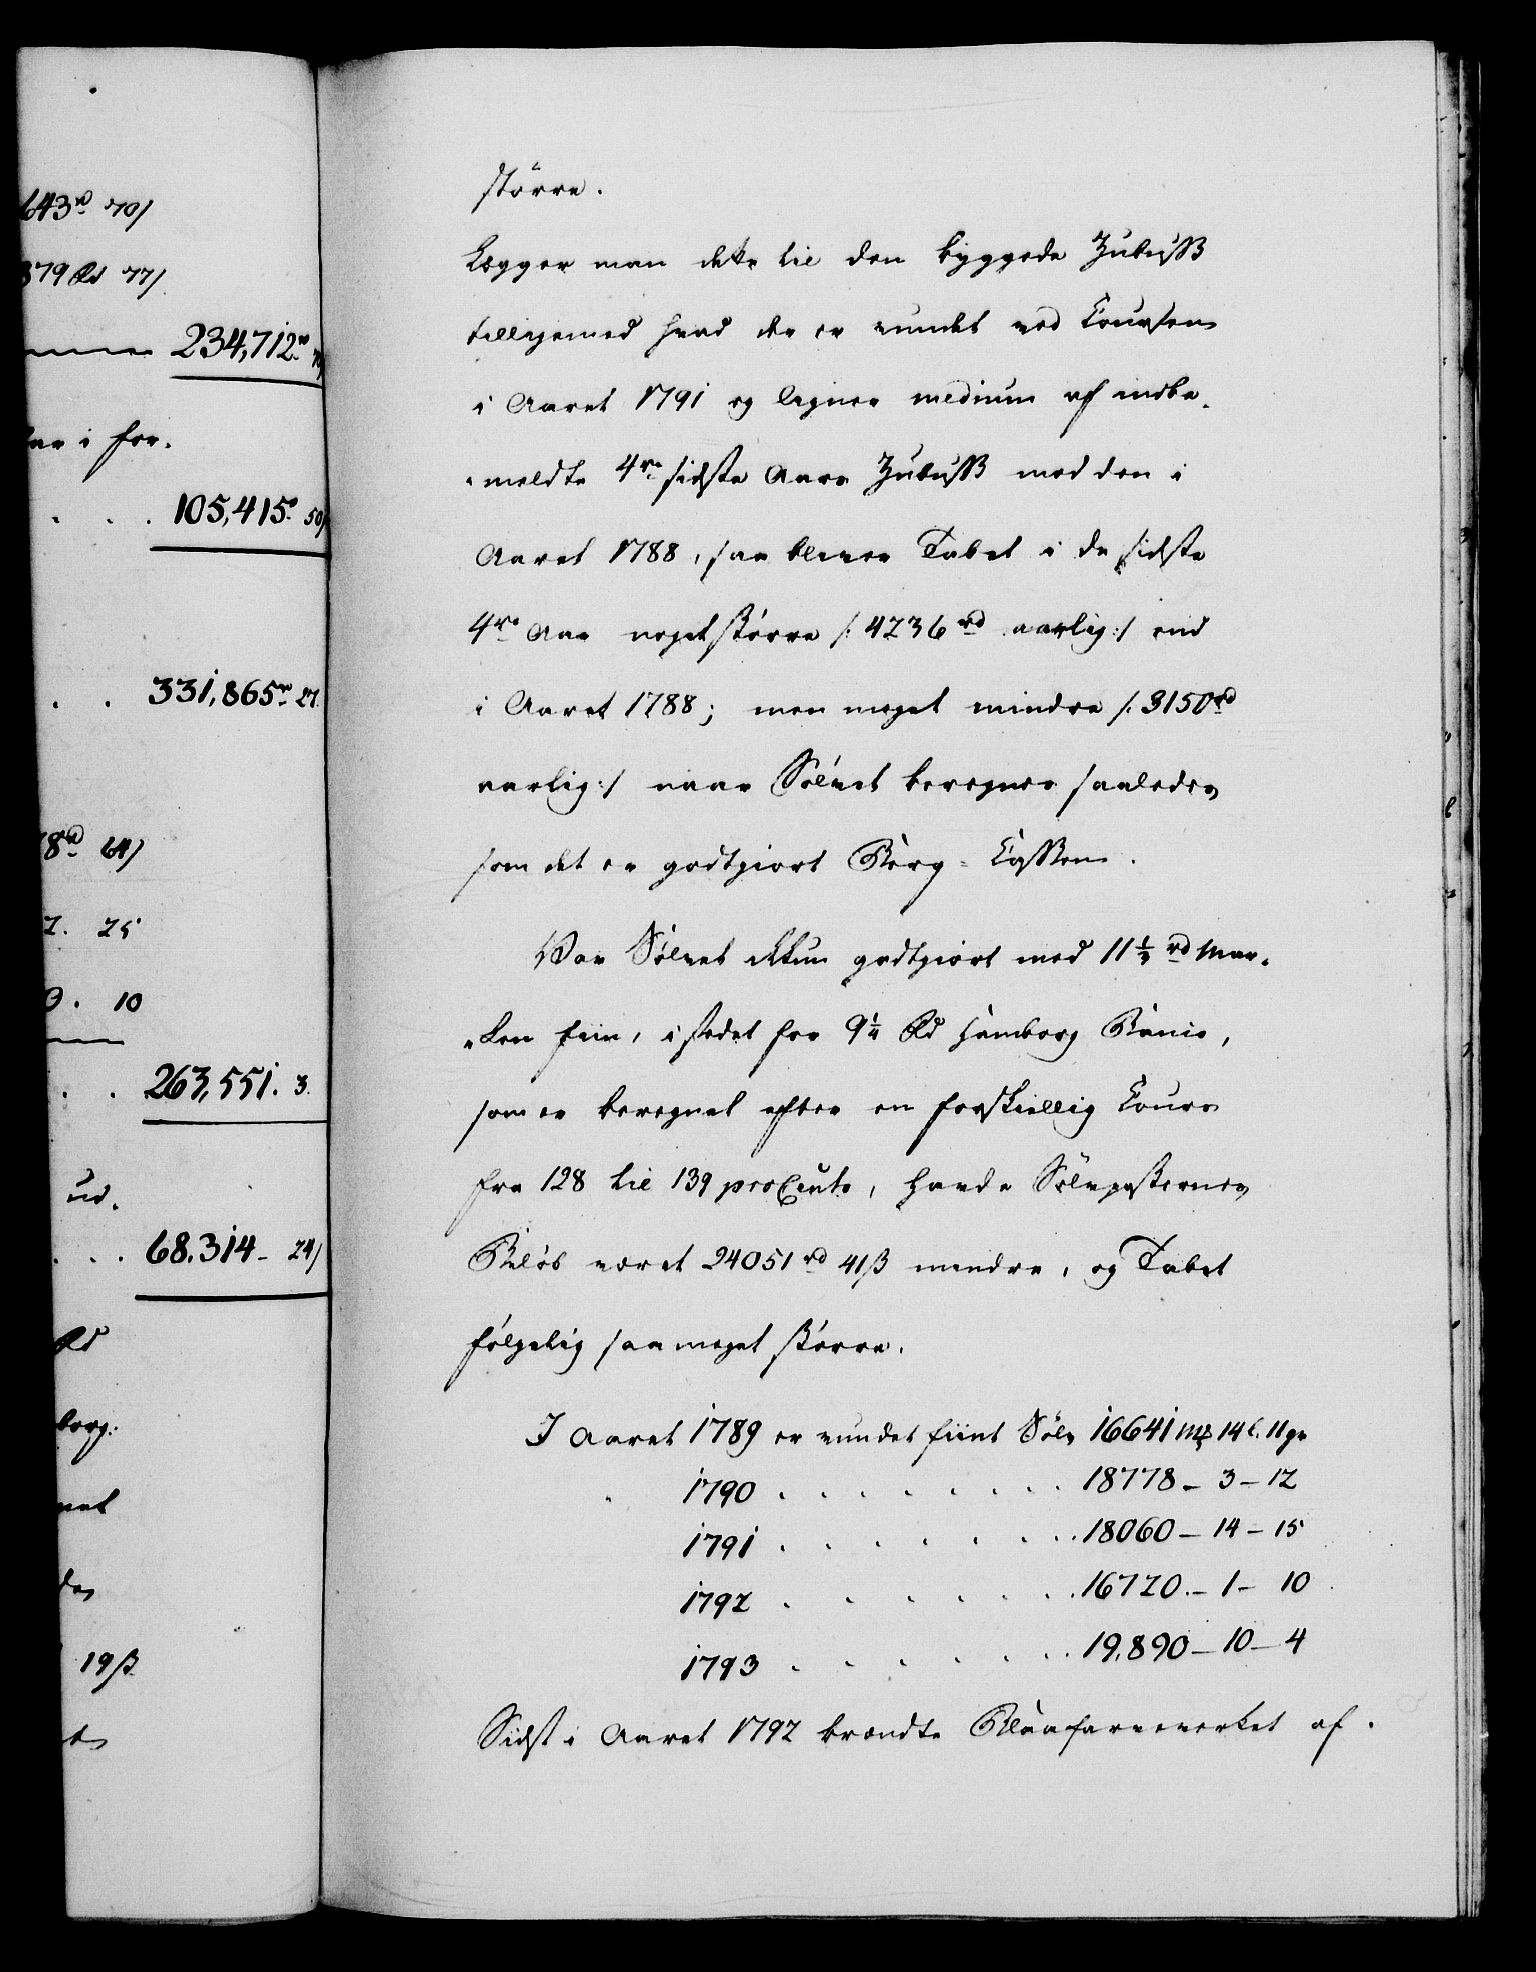 643rd 70/
379 Rd 77/
234,712rd 70/
ar i for-
105,415rd 50/
331,865rd 27.
8rd 64/
2. 25
0. 10
263,551. 3.
ud-
68.314 - 24/
Rd
borg:
net
des
19 ß
större.
Lægger man dette til den byggede Zubuss
tilligemed hvad der er vundet ved Coursen
i Aaret 1791 og ligner medium af indbe-
-meldte 4re sidste Aars Zubuss med den i
Aaret 1788, saa bliver Tabet i de sidste
4re Aar noget större /: 4236 rd aarlig :/ end
i Aaret 1788; men meget mindre /: 3150 rd
aarlig :/ naar Sölvet beregnes saaledes
som det er godtgiort Berg-Cassen.
Var Sölvet ikkun godtgiort med 11½ rd Mar-
-ken fiin, i stedet for 9¼ Rd Hamborg Banco,
som er beregnet efter en forskiellig Cours
fra 128 til 139 proCento, havde Sölvposternes
Belöb været 24051 rd 41 ß mindre, og Tabet
fölgelig saa meget större.
I Aaret 1789 er vundet fiint Sölv 16641 Mk 14 l. 11 gr
1790 . . . . . . . . 18778 - 3 - 12
1791 . . . . . . . 18060 - 14 - 15
1792 . . . . . . 16720. - 1 - 10
1793 . . . . . . 19.890 - 10 - 4
Sidst i Aaret 1792 brændte Blaafarveverket af.